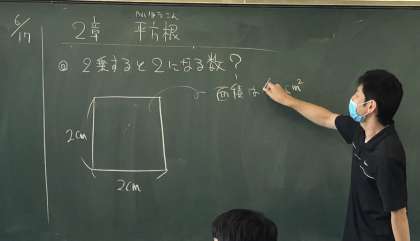 6/17
へいほうこん
2章 平方根
◎ 2乗すると2になる数?
面積は cm²
2cm
2cm